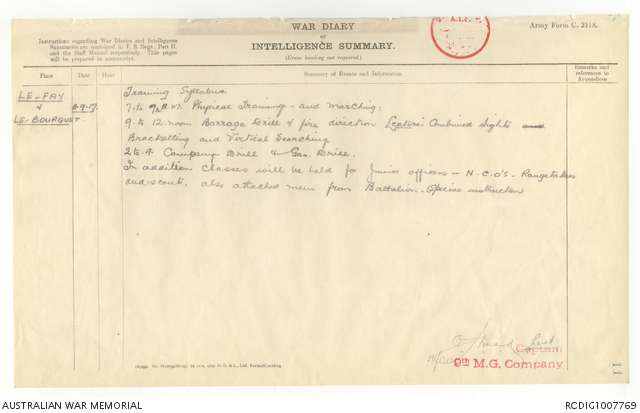 WAR DIARY
or
INTELLIGENCE SUMMARY.
(Erase heading not required).
Army Form C. 2118.
A.I.F.
Instructions regarding War Diaries and Intelligence
Summaries are contained in F. S. Regs., Part II.
and the Staff Manual respectively. Title pages
will be prepared in manuscript.
Place
Date
Hour
Summary of Events and Information
Remarks and
references to
Appendices
LE-FAY
&
LE-BOURGUET.
6-9-17.
Training Syllabus
7 to 9 A.M. Physical Training - and Marching.
9 to 12 noon Barrage Drill & fire direction Lecture: Combined Sights
Bracketting and Vertical Searching
2 to 4. Company Drill & Gas Drill.
In addition classes will be held for Junior officers - N.C.O's - Rangetakers
and scouts, also attached men from Battalion. Special instruction
Captain
9th M.G. Company
11
AUSTRALIAN WAR MEMORIAL
RCDIG1007769